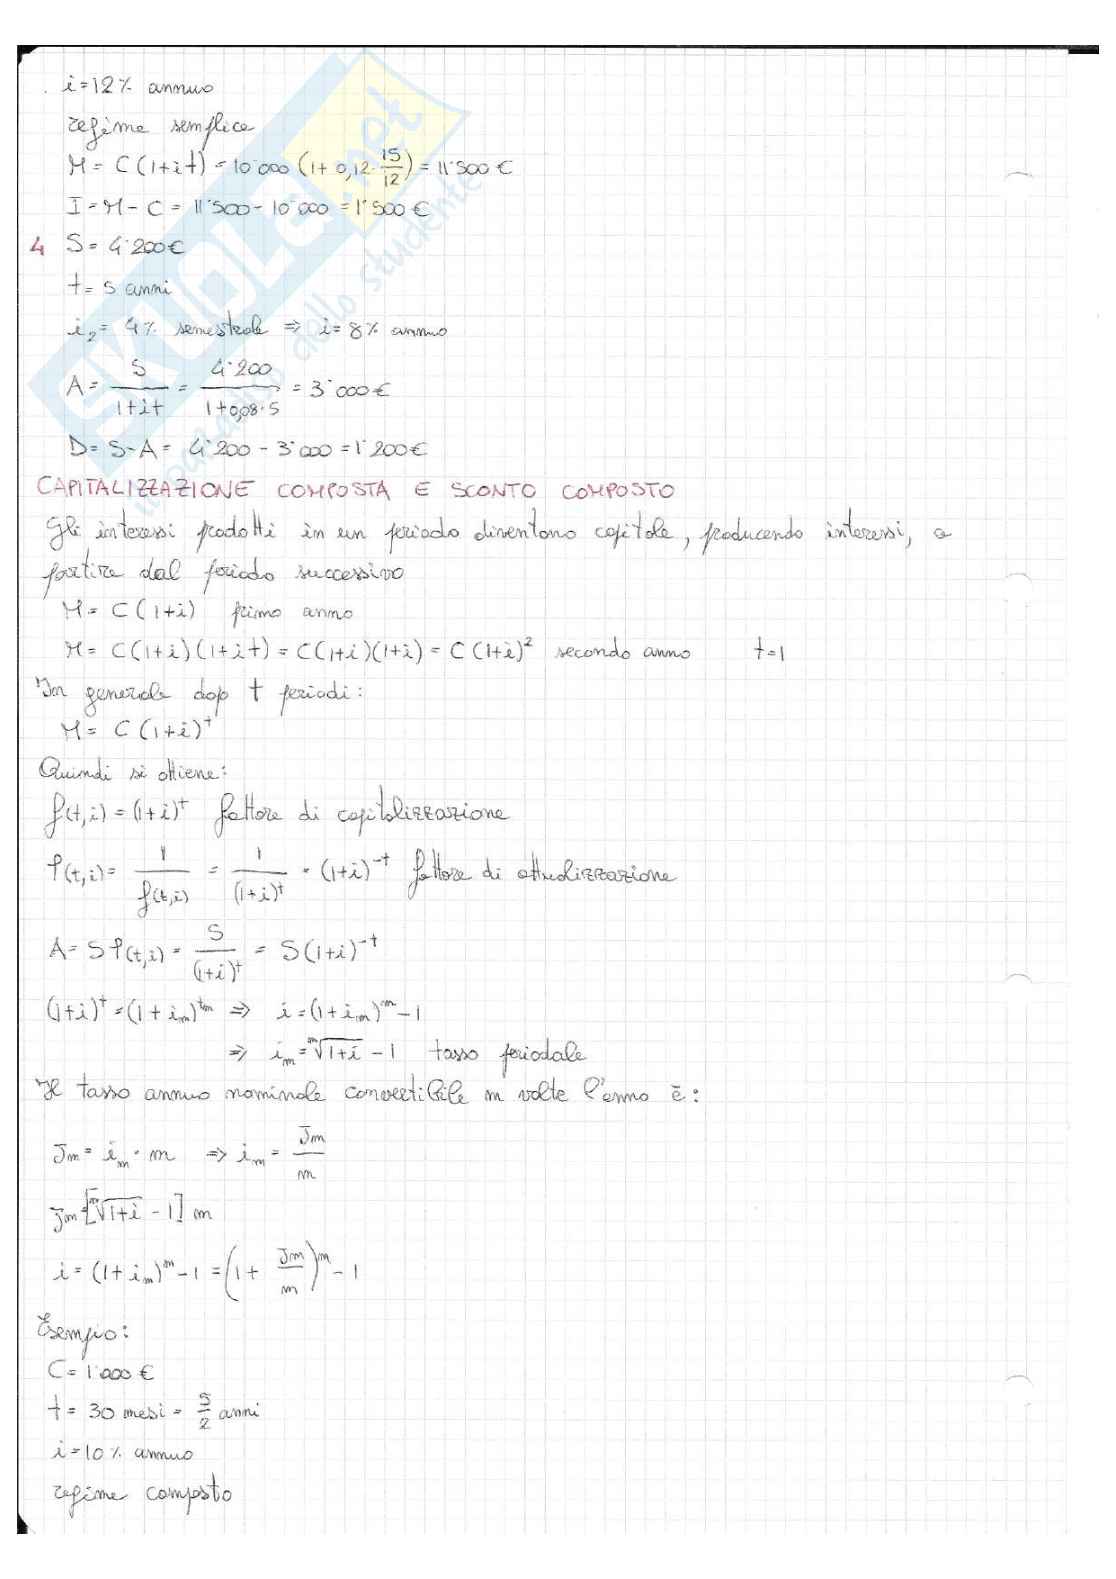 i=12% annuo
regime semplice
M = C(1+it) = 10'000 (1+0,12·15/12) = 11'500 €
I = M - C = 11'500 - 10'000 = 1'500 €
4 S = 4'200 €
t = 5 anni
i₂ = 4% semestrale ⇒ i = 8% annuo
A = S/(1+it) = 4'200/(1+0,08·5) = 3'000 €
D = S-A = 4'200 - 3'000 = 1'200 €
CAPITALIZZAZIONE COMPOSTA E SCONTO COMPOSTO
Gli interessi prodotti in un periodo diventano capitale, producendo interessi, a
partire dal periodo successivo
M = C(1+i) primo anno
M = C(1+i)(1+it) = C(1+i)(1+i) = C(1+i)² secondo anno t=1
In generale dopo t periodi:
M = C(1+i)^t
Quindi si ottiene:
f(t,i) = (1+i)^t fattore di capitalizzazione
φ(t,i) = 1/f(t,i) = 1/(1+i)^t = (1+i)^-t fattore di attualizzazione
A = Sφ(t,i) = S/(1+i)^t = S(1+i)^-t
(1+i)^t = (1+i_m)^tm ⇒ i = (1+i_m)^m - 1
⇒ i_m = ᵐ√(1+i) - 1 tasso periodale
Il tasso annuo nominale convertibile m volte l'anno è:
J_m = i_m · m ⇒ i_m = J_m/m
J_m = [ᵐ√(1+i) - 1] m
i = (1+i_m)^m - 1 = (1 + J_m/m)^m - 1
Esempio:
C = 1'000 €
t = 30 mesi = 5/2 anni
i = 10% annuo
regime composto
SKUOLA.net
il paradiso dello studente